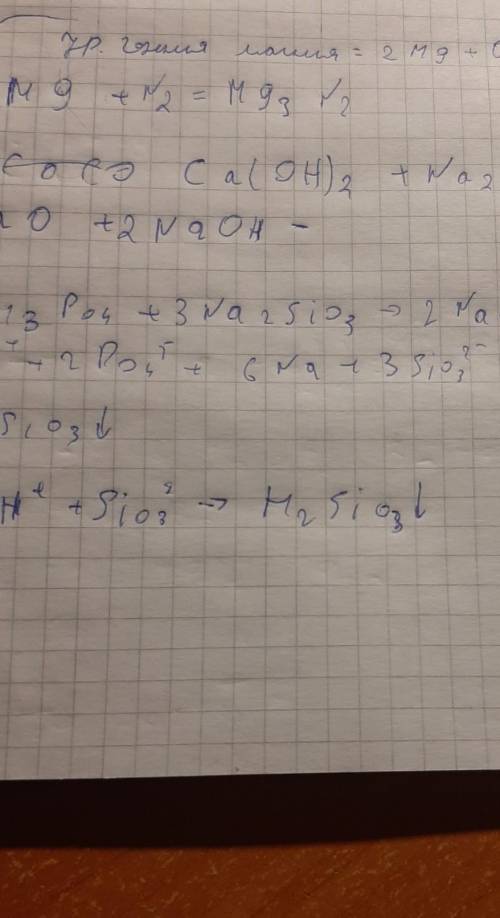 Ур. гония магния = 2 Mg +
Mg + N2 = Mg3 N2
Ca(OH)2 + Na2
O + 2 NaOH -
3 PO4 + 3 Na2SiO3 → 2 Na
+ + 2 PO4 + 6 Na + 3 SiO3 2-
SiO3↓
H+ + SiO3 → H2SiO3↓